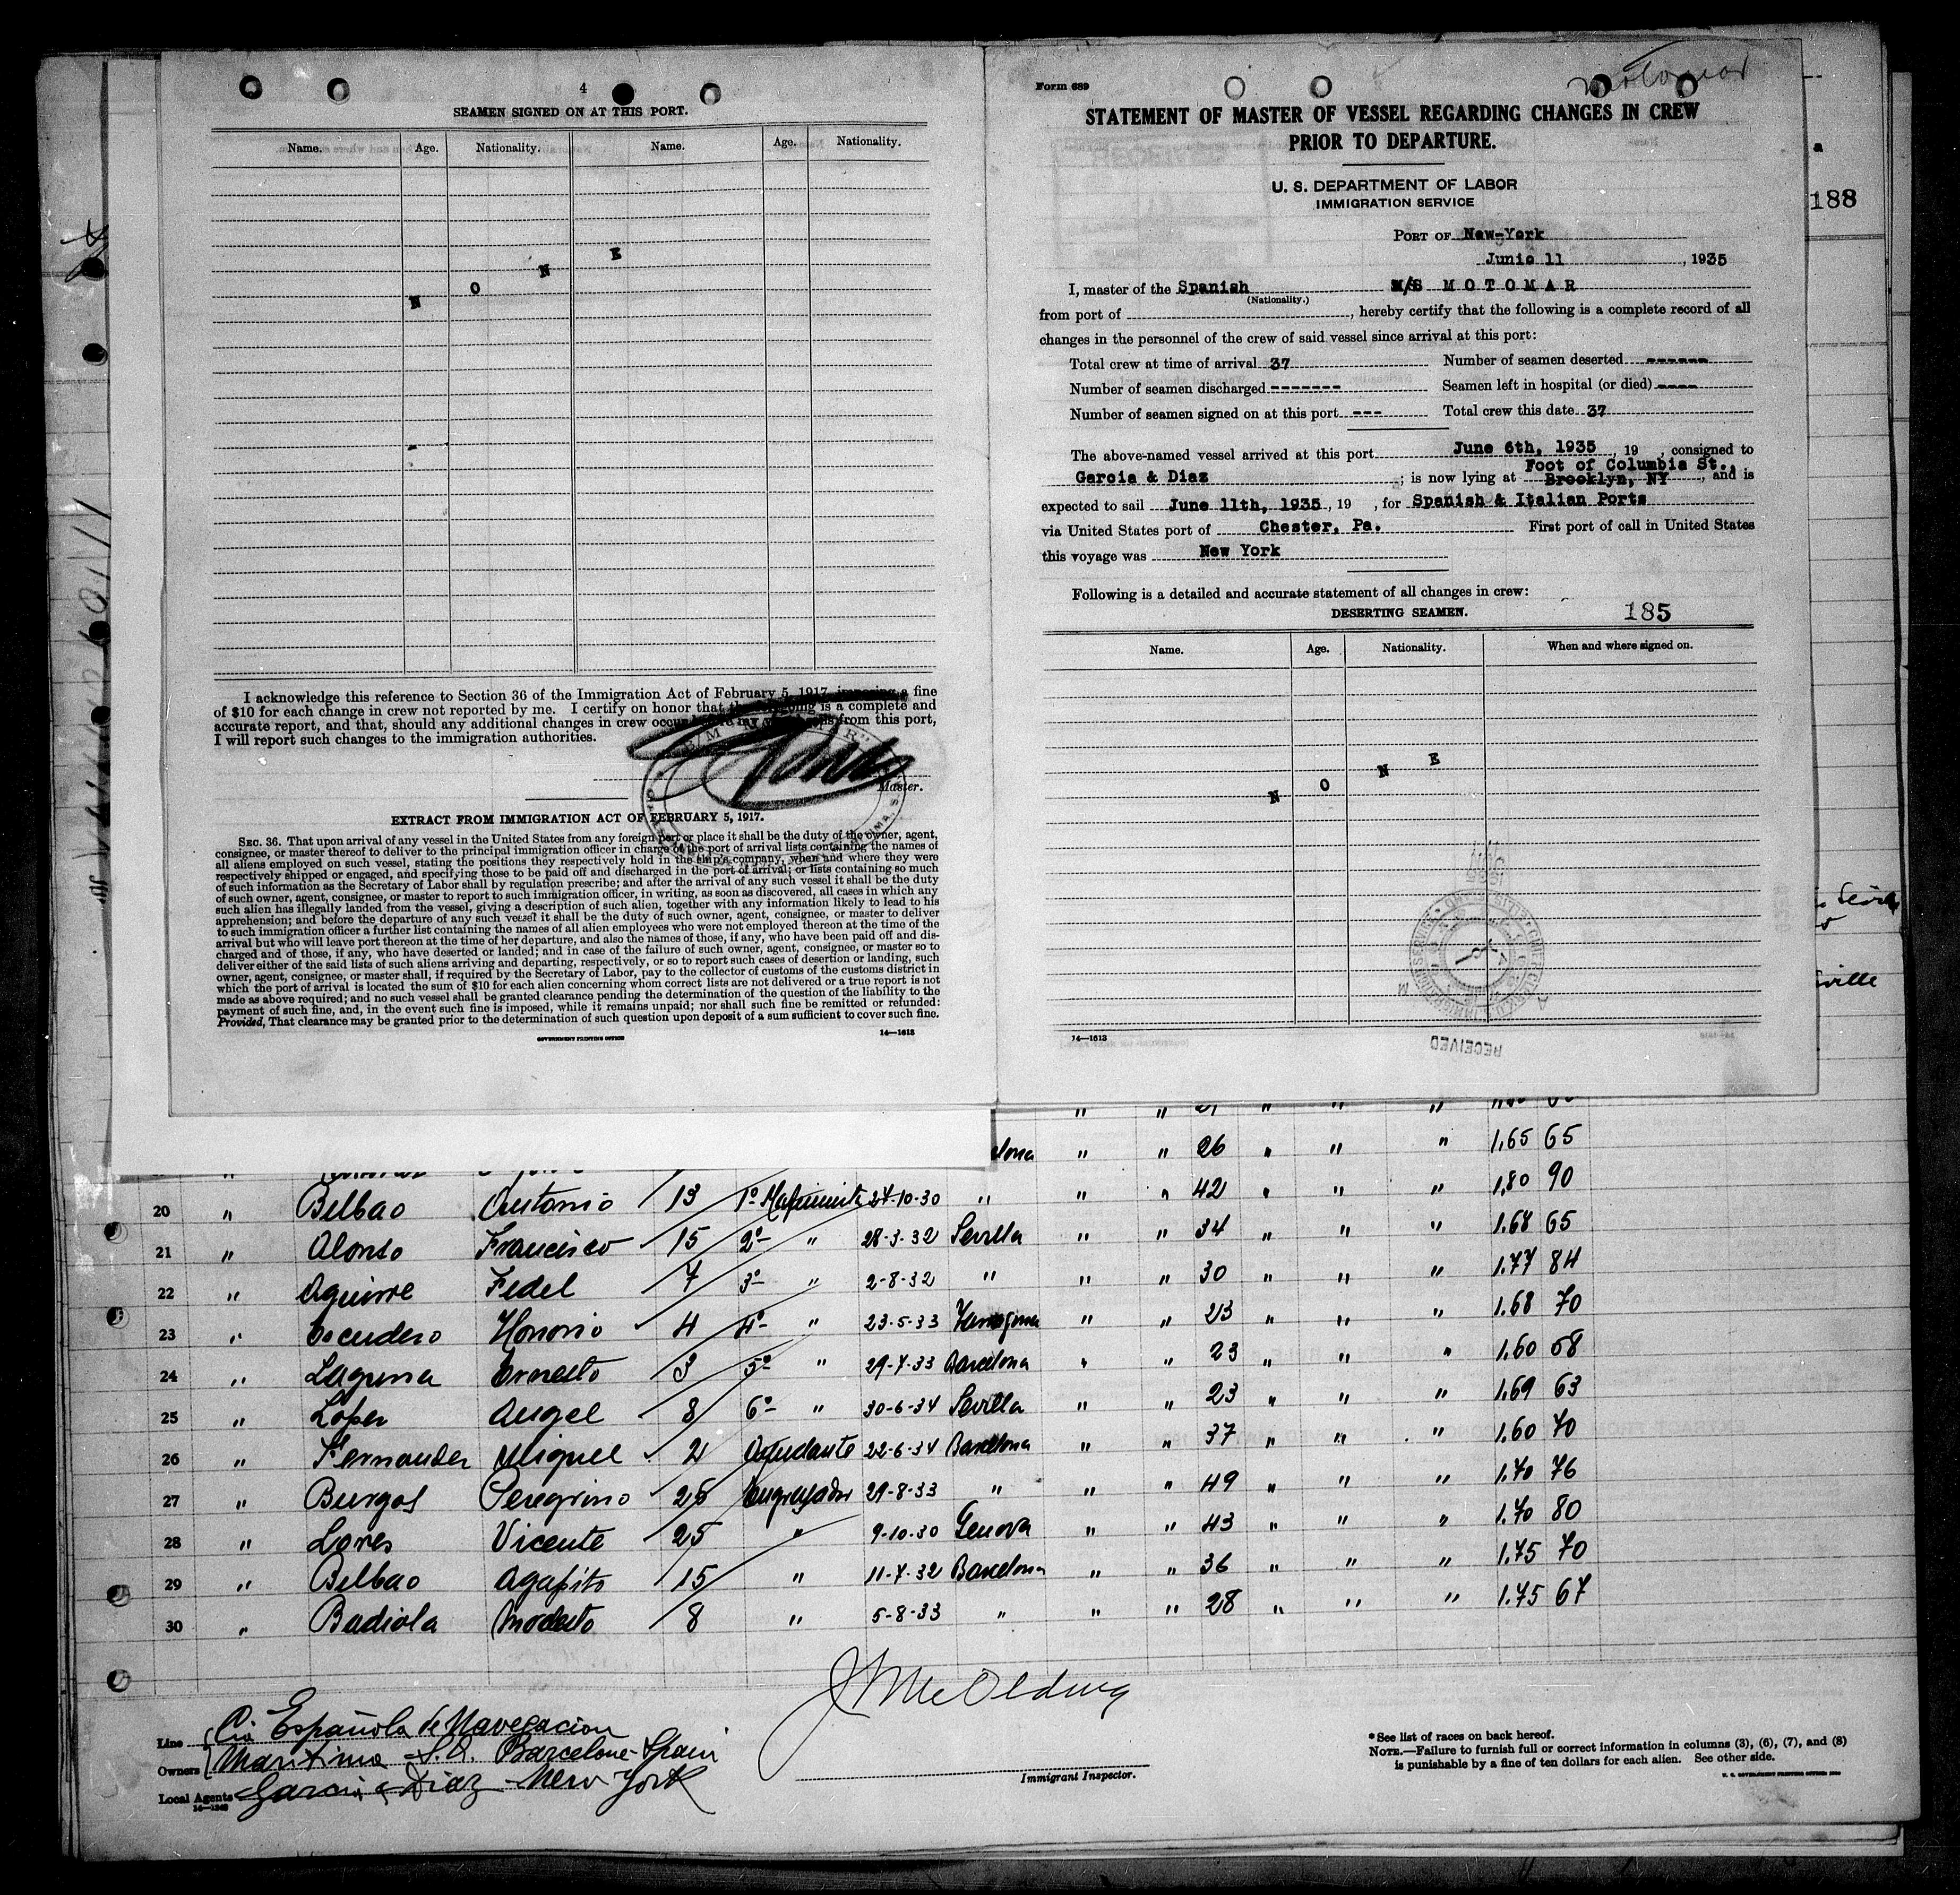 4
SEAMEN SIGNED ON AT THIS PORT.
Name. Age. Nationality. Name. Age. Nationality.
N O N E
I acknowledge this reference to Section 36 of the Immigration Act of February 5, 1917, imposing a fine
of $10 for each change in crew not reported by me. I certify on honor that the foregoing is a complete and
accurate report, and that, should any additional changes in crew occur before my vessel sails from this port,
I will report such changes to the immigration authorities.
Master.
EXTRACT FROM IMMIGRATION ACT OF FEBRUARY 5, 1917.
SEC. 36. That upon arrival of any vessel in the United States from any foreign port or place it shall be the duty of the owner, agent,
consignee, or master thereof to deliver to the principal immigration officer in charge of the port of arrival lists containing the names of
all aliens employed on such vessel, stating the positions they respectively hold in the ship's company, when and where they were
respectively shipped or engaged, and specifying those to be paid off and discharged in the port of arrival; or lists containing so much
of such information as the Secretary of Labor shall by regulation prescribe; and after the arrival of any such vessel it shall be the duty
of such owner, agent, consignee, or master to report to such immigration officer, in writing, as soon as discovered, all cases in which any
such alien has illegally landed from the vessel, giving a description of such alien, together with any information likely to lead to his
apprehension; and before the departure of any such vessel it shall be the duty of such owner, agent, consignee, or master to deliver
to such immigration officer a further list containing the names of all alien employees who were not employed thereon at the time of the
arrival but who will leave port thereon at the time of her departure, and also the names of those, if any, who have been paid off and dis-
charged and of those, if any, who have deserted or landed; and in case of the failure of such owner, agent, consignee, or master so to
deliver either of the said lists of such aliens arriving and departing, respectively, or so to report such cases of desertion or landing, such
owner, agent, consignee, or master shall, if required by the Secretary of Labor, pay to the collector of customs of the customs district in
which the port of arrival is located the sum of $10 for each alien concerning whom correct lists are not delivered or a true report is not
made as above required; and no such vessel shall be granted clearance pending the determination of the question of the liability to the
payment of such fine, and, in the event such fine is imposed, while it remains unpaid; nor shall such fine be remitted or refunded:
Provided, That clearance may be granted prior to the determination of such question upon deposit of a sum sufficient to cover such fine.
GOVERNMENT PRINTING OFFICE 14—1613
Motomar
Form 689
STATEMENT OF MASTER OF VESSEL REGARDING CHANGES IN CREW
PRIOR TO DEPARTURE.
U. S. DEPARTMENT OF LABOR
IMMIGRATION SERVICE
188
PORT OF New-York
Junio 11, 1935
I, master of the Spanish M/S M O T O M A R
(Nationality.)
from port of , hereby certify that the following is a complete record of all
changes in the personnel of the crew of said vessel since arrival at this port:
Total crew at time of arrival 37 Number of seamen deserted ------
Number of seamen discharged ------- Seamen left in hospital (or died) ----
Number of seamen signed on at this port --- Total crew this date 37
The above-named vessel arrived at this port June 6th, 1935, 19 , consigned to
Garcia & Diaz ; is now lying at Foot of Columbia St., Brooklyn, NY, and is
expected to sail June 11th, 1935, 19 , for Spanish & Italian Ports
via United States port of Chester, Pa. First port of call in United States
this voyage was New York
Following is a detailed and accurate statement of all changes in crew:
DESERTING SEAMEN. 185
Name. Age. Nationality. When and where signed on.
N O N E
RECEIVED
14—1613
ville
" " 26 " " " 1,65 65
20 " Bilbao Antonio 13 1º Maquinista 24-10-30 " " " 42 " " " 1,80 90
21 " Alonso Francisco 15 2º " 28-3-32 Sevilla " " 34 " " " 1.68 65
22 " Aguirre Fidel 7 3º " 2-8-32 " " " 30 " " " 1.77 84
23 " Escudero Honorio 4 4º " 23-5-33 Tarragona " " 23 " " " 1.68 70
24 " Laguna Ernesto 3 5º " 29-7-33 Barcelona " " 23 " " " 1.60 58
25 " Lopez Angel 8 6º " 30-6-34 Sevilla " " 23 " " " 1.69 63
26 " Fernandez Miguel 2 Ayudante 22-6-34 Barcelona " " 37 " " " 1.60 70
27 " Burgos Peregrino 26 Engrasador 29-8-33 " " " 49 " " " 1.70 76
28 " Lores Vicente 25 " 9-10-30 Genova " " 43 " " " 1.70 80
29 " Bilbao Agapito 15 " 11-7-32 Barcelona " " 36 " " 1.75 70
30 " Badiola Modesto 8 " 5-8-33 " " " 28 " " " 1.75 67
Line Cia Española de Navegacion
Owners Maritima S.A. Barcelona-Spain
Local Agents Garcia & Diaz New York
14—1240
Immigrant Inspector.
* See list of races on back hereof.
NOTE.—Failure to furnish full or correct information in columns (3), (6), (7), and (8)
is punishable by a fine of ten dollars for each alien. See other side.